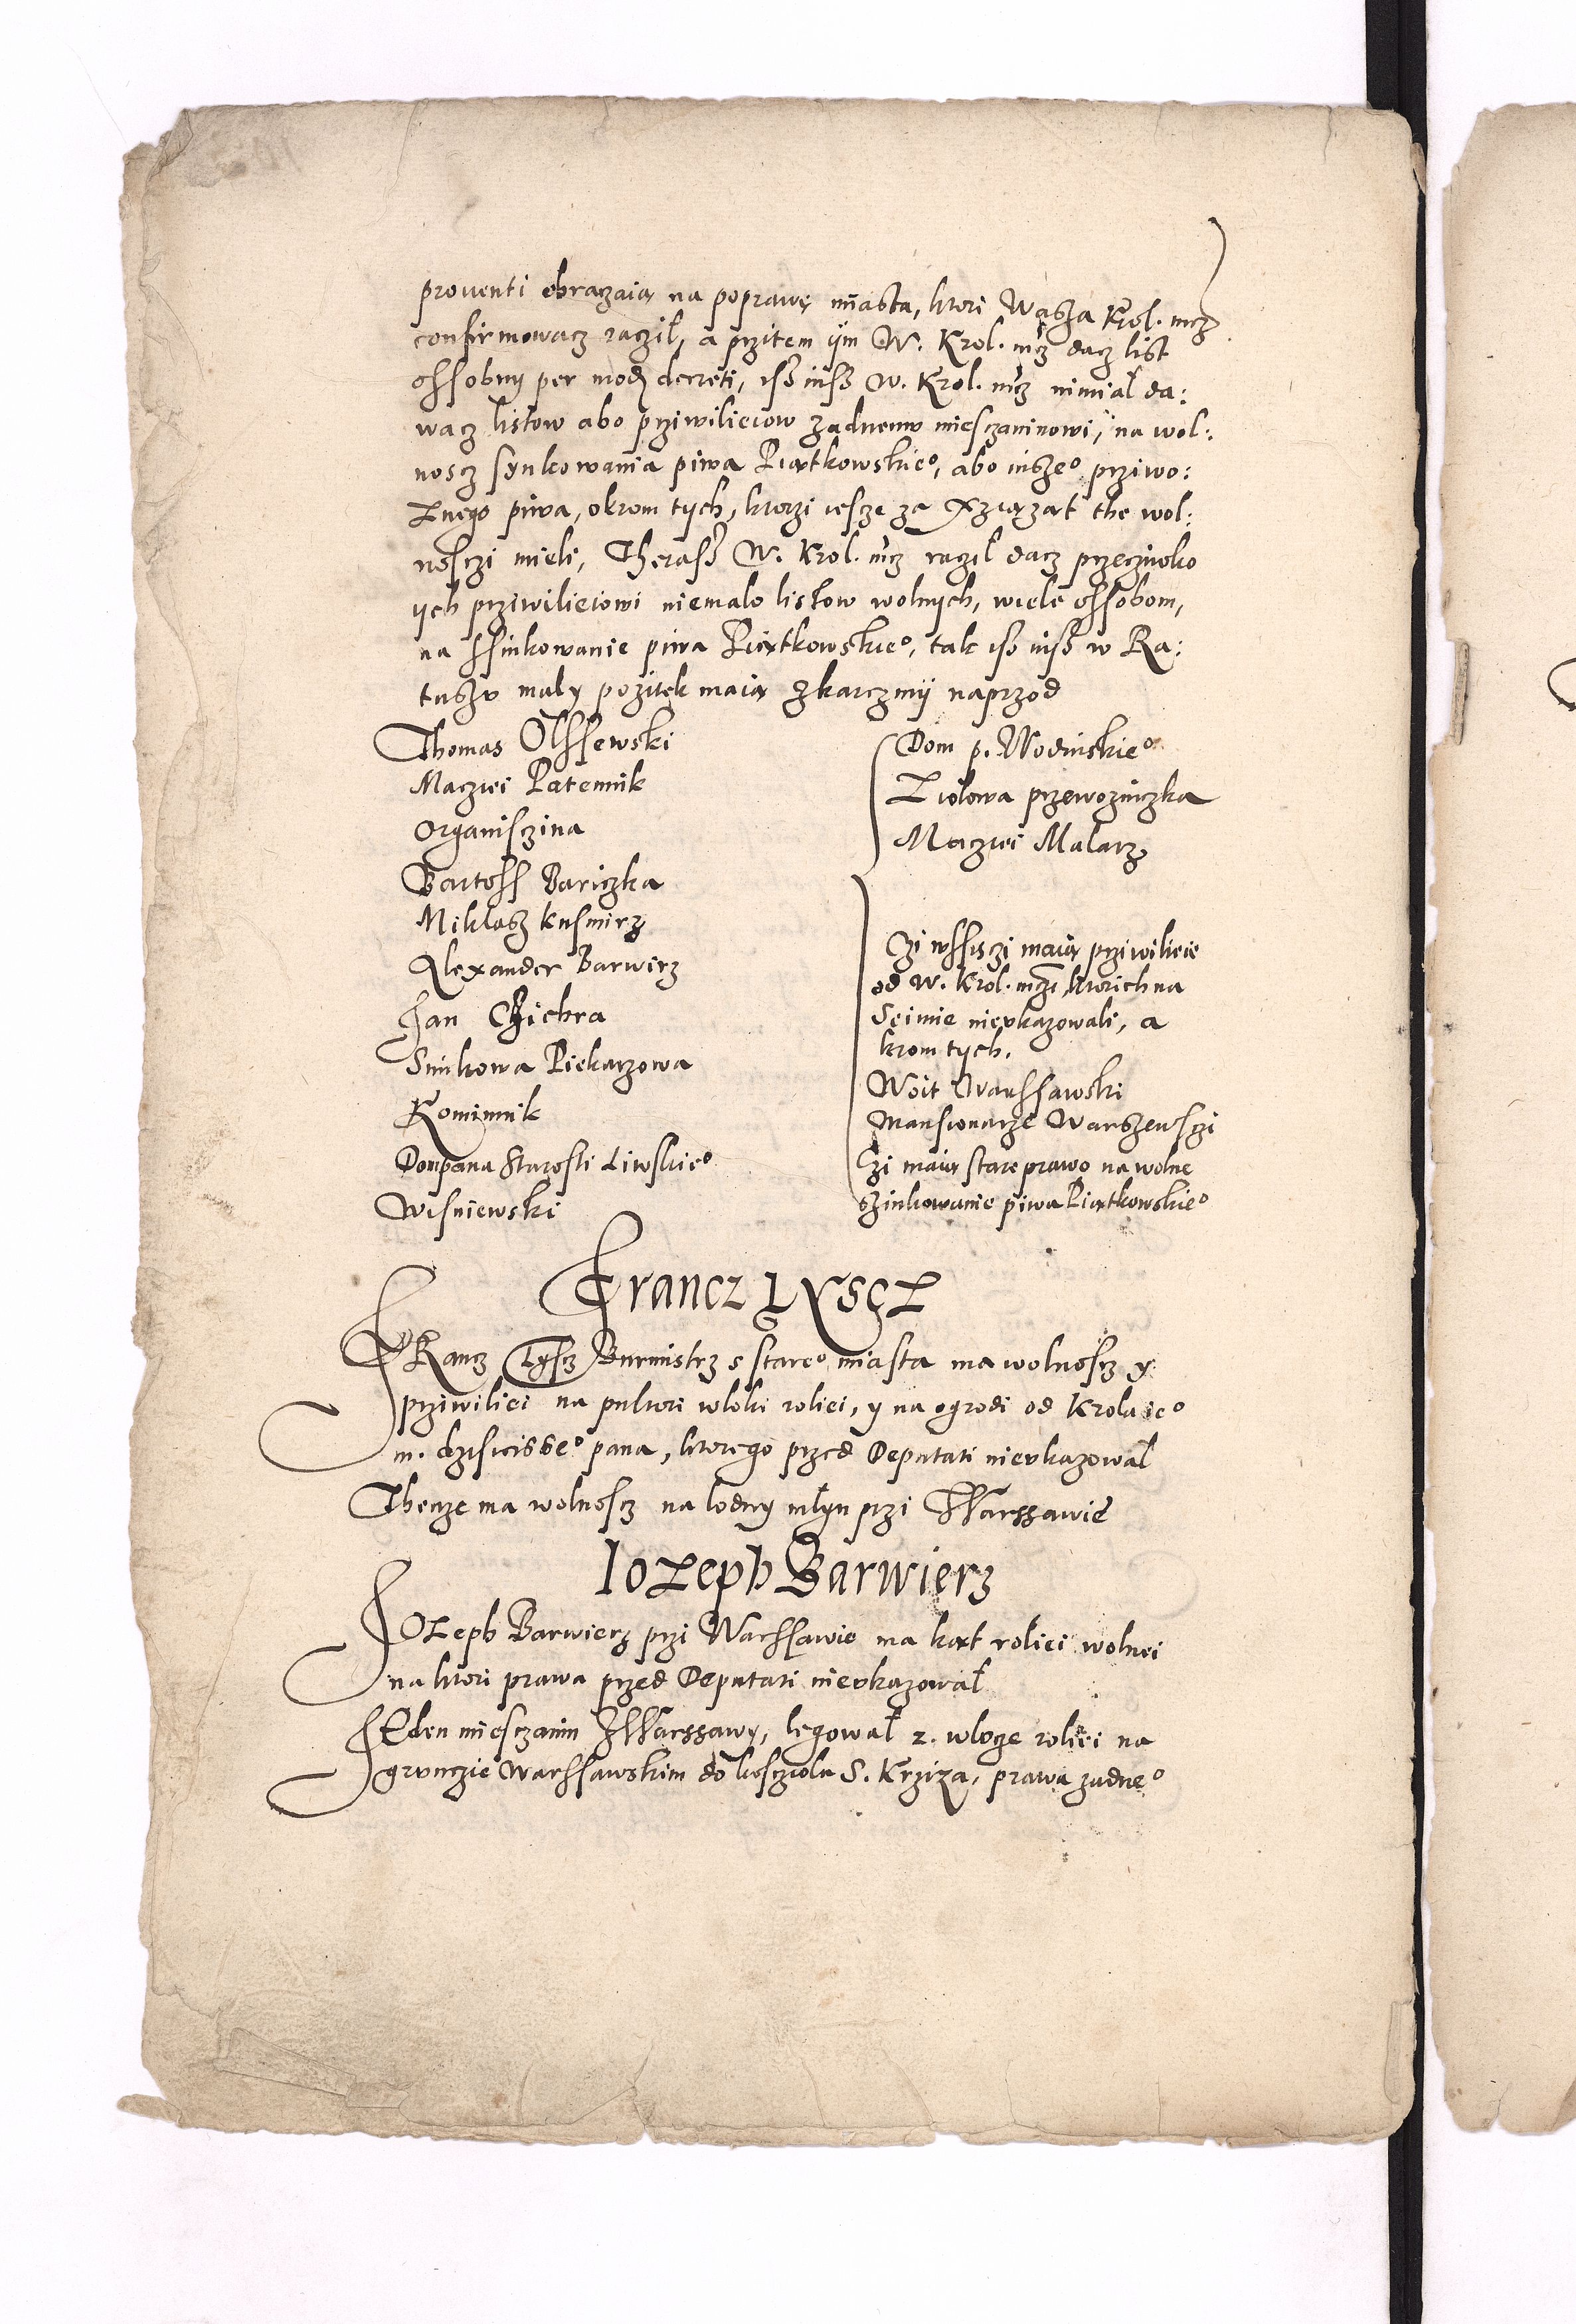 prouenti obraczaią na poprawę miasta, ktori Wasza Krol. mcz
confirmowacz raczil, a przitem ijm W. Krol. mcz dacz list
ossobny per mod decreti, isz iusz W. Krol. mcz nimial da:
wacz listow abo prziwilieiow zadnemu miesczaninowi, na wol:
noscz synkowania piwa Piątkowskieo, abo inszeo prziwo:
znego piwa, okrom tych, ktorzi iescze za Xziążąt the wol:
nosczi mieli, Therasz W. Krol. mcz raczil dacz przecziwko
ijch prziwilieiowi niemalo listow wolnych, wiele ossobom,
na ssinkowanie piwa Piątkowskieo, tak isz iusz w Ra:
tuszu maly pozitek maią z karczmij naprzod
Thomas Olssewski
Macziei Paternik
Organisczina
Bartoss Bariczka
Miklasz Kusmirz
Alexander Barwirz
Jan Czichra
Sinkowa Piekarzowa
Kominnik
Dom pana Starosti Liwskieo
Wisniewski
Dom p. Wodinskieo
Ziolowa przewozniczka
Macziei Malarz
Czi wssisczi maią prziwilieie
od W. Krol. mczi, ktorich na
Seimie nieukazowali, a
krom tych.
Woit Warssawski
Mansionarze Warszewsczi
Czi maią stare prawo na wolne
szinkowanie piwa Piątkowskieo
Francz Łyscz
FRancz Łyscz Burmistrz s stareo miasta ma wolnoscz y
prziwiliei na pultori wloki roliei, y na ogrodi od Krola ieo
m. dzisieisseo pana, ktorego przed Deputati nieukazowal
Thenze ma wolnoscz na lodny młyn przi Warssawie
Iozeph Barwierz
IOzeph Barwierz przi Warssawie ma kąt roliei wolnei
na ktori prawa przed Deputati nieukazowal
IEden miesczanin z Warssawy, legowal 2. wloce roliei na
grunczie Warssawskim do koscziola S. Krziza, prawa zadneo